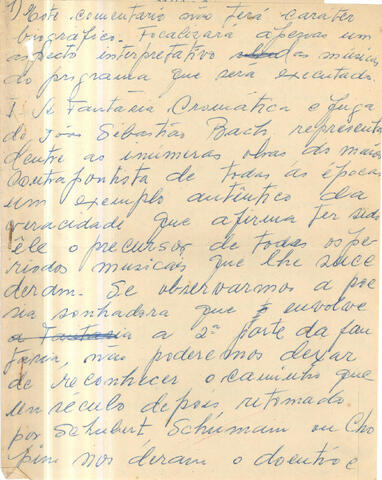 1) Este comentario não terá carater
biográfico. Focalizará apenas um
aspecto interpretativo das músicas
do programa que sera executado.
I. A Fantasia Cromática e fuga
de João Sebastião Bach representa
dentre as inúmeras obras do maior
contrapontista de todas as épocas
um exemplo autêntico da
veracidade que afirma ter sido
êle o precursor de todos os pe-
riodos musicais que lhe suce
deram. Se observarmos a poe
sia sonhadora que envolve
a Fantasia a 2ª parte da fan
tasia, não poderemos deixar
de reconhecer o caminho que
um século depois retomado
por Schubert Schumann ou Cho
pin nos deram o doentio e